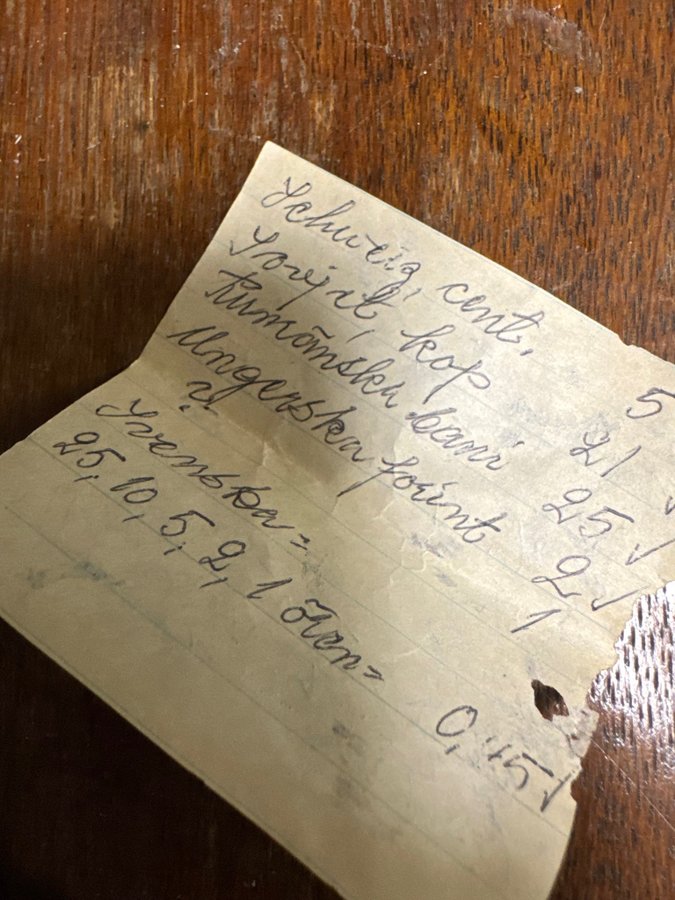 Schweiz, cent. 5
Sovjet, kop 21 ✓
Rumänska bani 25 ✓
Ungerska forint 2 ✓
? 1
Svenska =
25, 10, 5, 2, 1 ören = 0,45 ✓